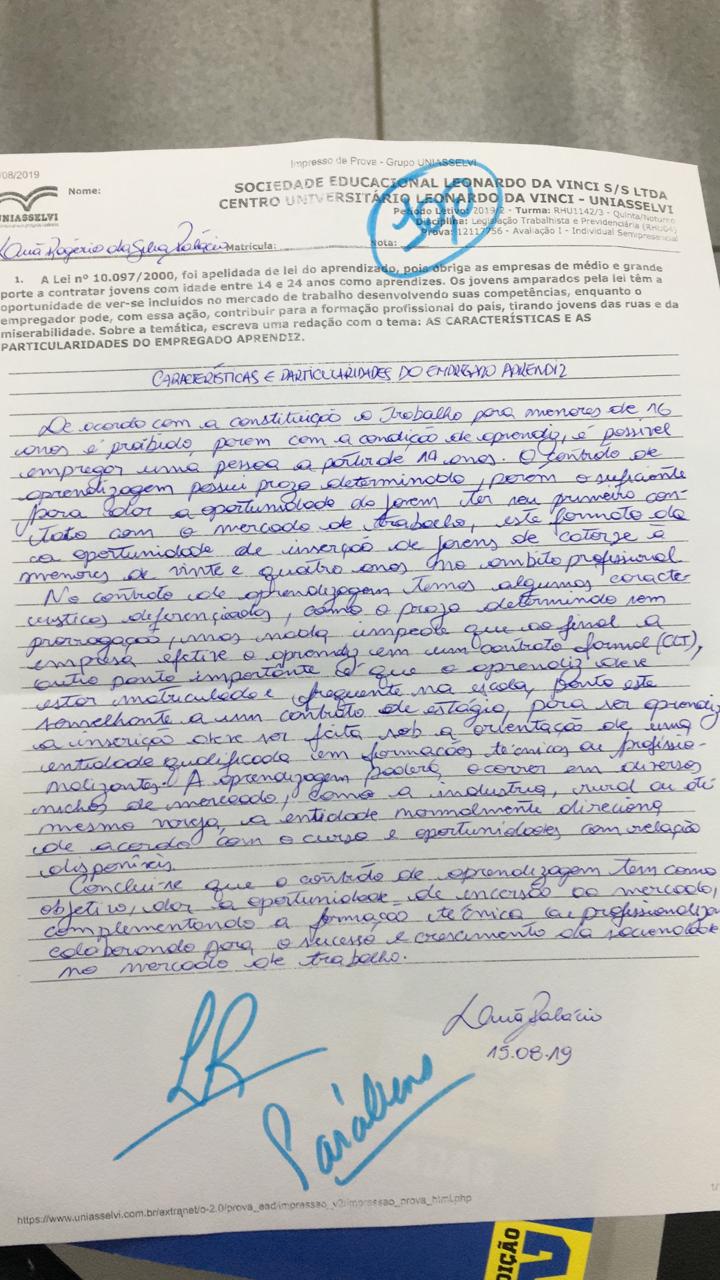 /08/2019
Impresso de Prova - Grupo UNIASSELVI
UNIASSELVI
Nome:
SOCIEDADE EDUCACIONAL LEONARDO DA VINCI S/S LTDA
CENTRO UNIVERSITÁRIO LEONARDO DA VINCI - UNIASSELVI
Período Letivo: 2019/2 - Turma: RHU1142/3 - Quinta/Noturno
Disciplina: Legislação Trabalhista e Previdenciária
Prova: 12112756 - Avaliação I - Individual Semipresencial
Rogério da Silva Palácio Matrícula: Nota:
1. A Lei nº 10.097/2000, foi apelidada de lei do aprendizado, pois obriga as empresas de médio e grande
porte a contratar jovens com idade entre 14 e 24 anos como aprendizes. Os jovens amparados pela lei têm a
oportunidade de ver-se incluídos no mercado de trabalho desenvolvendo suas competências, enquanto o
empregador pode, com essa ação, contribuir para a formação profissional do país, tirando jovens das ruas e da
miserabilidade. Sobre a temática, escreva uma redação com o tema: AS CARACTERÍSTICAS E AS
PARTICULARIDADES DO EMPREGADO APRENDIZ.
CARACTERÍSTICAS E PARTICULARIDADES DO EMPREGADO APRENDIZ
De acordo com a constituição o Trabalho para menores de 16
anos é proibido, porem com a condição de aprendiz, é possível
empregar uma pessoa a partir de 14 anos. O contrato de
aprendizagem possui prazo determinado, porem o suficiente
para dar a oportunidade do jovem ter seu primeiro con-
tato com o mercado de trabalho, este formato da
a oportunidade de inserção de jovens de catorze à
menores de vinte e quatro anos no ambito profissional
No contrato de aprendizagem temos algumas caracte
rísticas diferenciadas, como o prazo determinado sem
prorrogação, mas nada impede que ao final a
empresa efetive o aprendiz em um contrato formal (CLT),
outro ponto importante é que o aprendiz deve
estar matriculado e frequente na escola, ponto este
semelhante a um contrato de estágio, para ser aprendiz
a inscrição deve ser feita sob a orientação de uma
entidade qualificada em formações técnicas ou profissio-
nalizantes. A aprendizagem poderá ocorrer em diversos
nichos de mercado, como a industria, rural ou até
mesmo varejo, a entidade normalmente direciona
de acordo com o curso e oportunidades com relação
disponíveis.
Conclui-se que o contrato de aprendizagem tem como
objetivo, dar a oportunidade de incersão ao mercado,
complementando a formação técnica ou profissionaliza
colaborando para o sucesso e crescimento da sociedade
no mercado de trabalho.
Palácio
15.08.19
LR
Parabéns
https://www.uniasselvi.com.br/extranet/o-2.0/prova_ead/impressao_v2/impressao_prova_html.php
1/
DIÇÃO